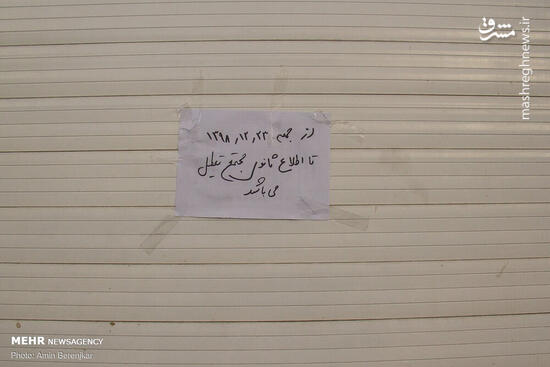 مشرق
mashreghnews.ir
از جمعه ۱۳۹۸,۱۲,۲۳
تا اطلاع ثانوی مجتمع تعطیل
می باشد
MEHR NEWSAGENCY
Photo: Amin Berenjkar